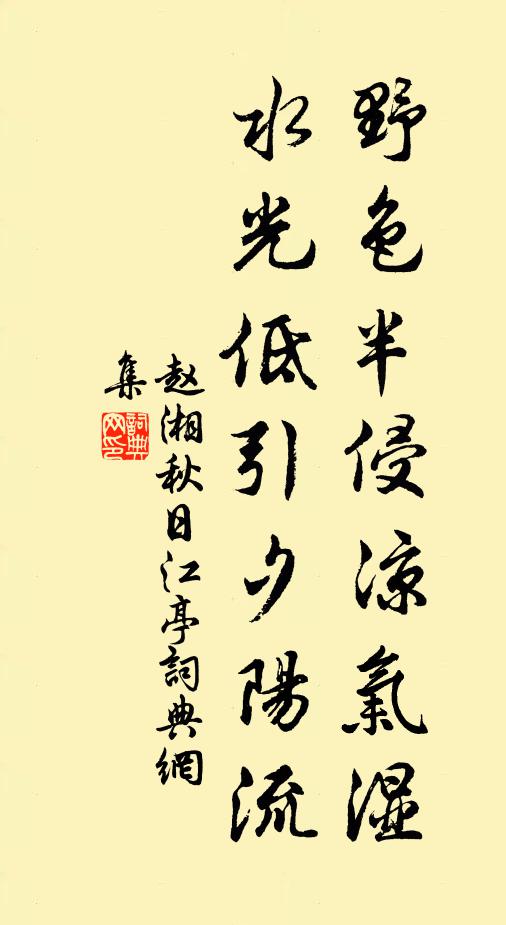 野色半侵凉氣濕
水光低引夕陽流
赵湘秋日江亭詞典網
集
詞典
网印